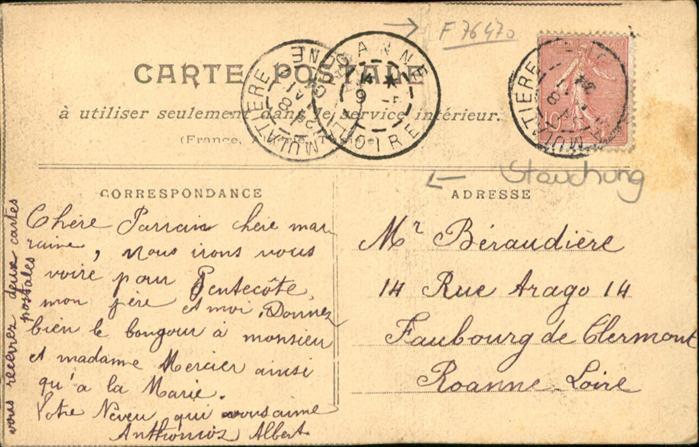 F 76470
CARTE POSTALE
à utiliser seulement dans le service intérieur.
(France,
ROANNE
LOIRE
LA MULATIERE
RHONE
LA MULATIERE
10
Stauchung
CORRESPONDANCE
Chère Parrain chere mar
raine, Nous irons vous
voire pour Pentecôte
mon père et moi. Donnez
bien le bongour à monsieur
et madame Mercier ainsi
qu'a la Marie.
Votre Neveu qui vous aime
Anthomioz Albert
vous recevrez deux cartes
postales
ADRESSE
Mr Béraudière
14 Rue Arago 14
Faubourg de Clermont
Roanne-Loire